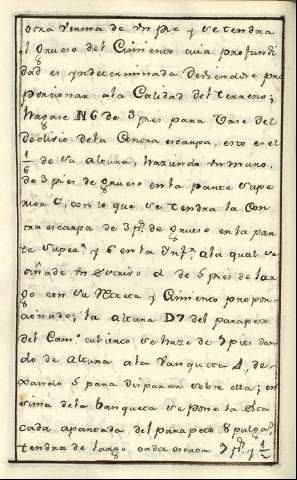 otra Verma de Vn pie y se tendra
el grueso del Cimiento cuia profundi
dad es yndeterminada Deviendose pro
porcionar ala Calidad del terreno;
hagase N6 de 3 pies para Vase del
declivio dela Contra escarpa, esto es el
1/6 de su altura, haziendo Vn muro
de 3 pies de grueso en la parte supe
rior 6, con lo que se tendra la Con
tra escarpa de 3 ps. de grueso en la par
te super.r y 6 en la Ynf.r ala qual se
añade Vn Estrivo 2 de 5 pies de lar
go con su y Cimiento propor
cionado; la altura D7 del parapeto
del Cam.o cubierto se haze de 7 pies dan
do de altura ala Vanqueta 4, de
xando 5 para disparar sobre ella; en
sima dela banqueta se pone la Esta
cada apartada del parapeto 8 pulga.s
tendra de largo cada estaca 7 ps. y 1/2